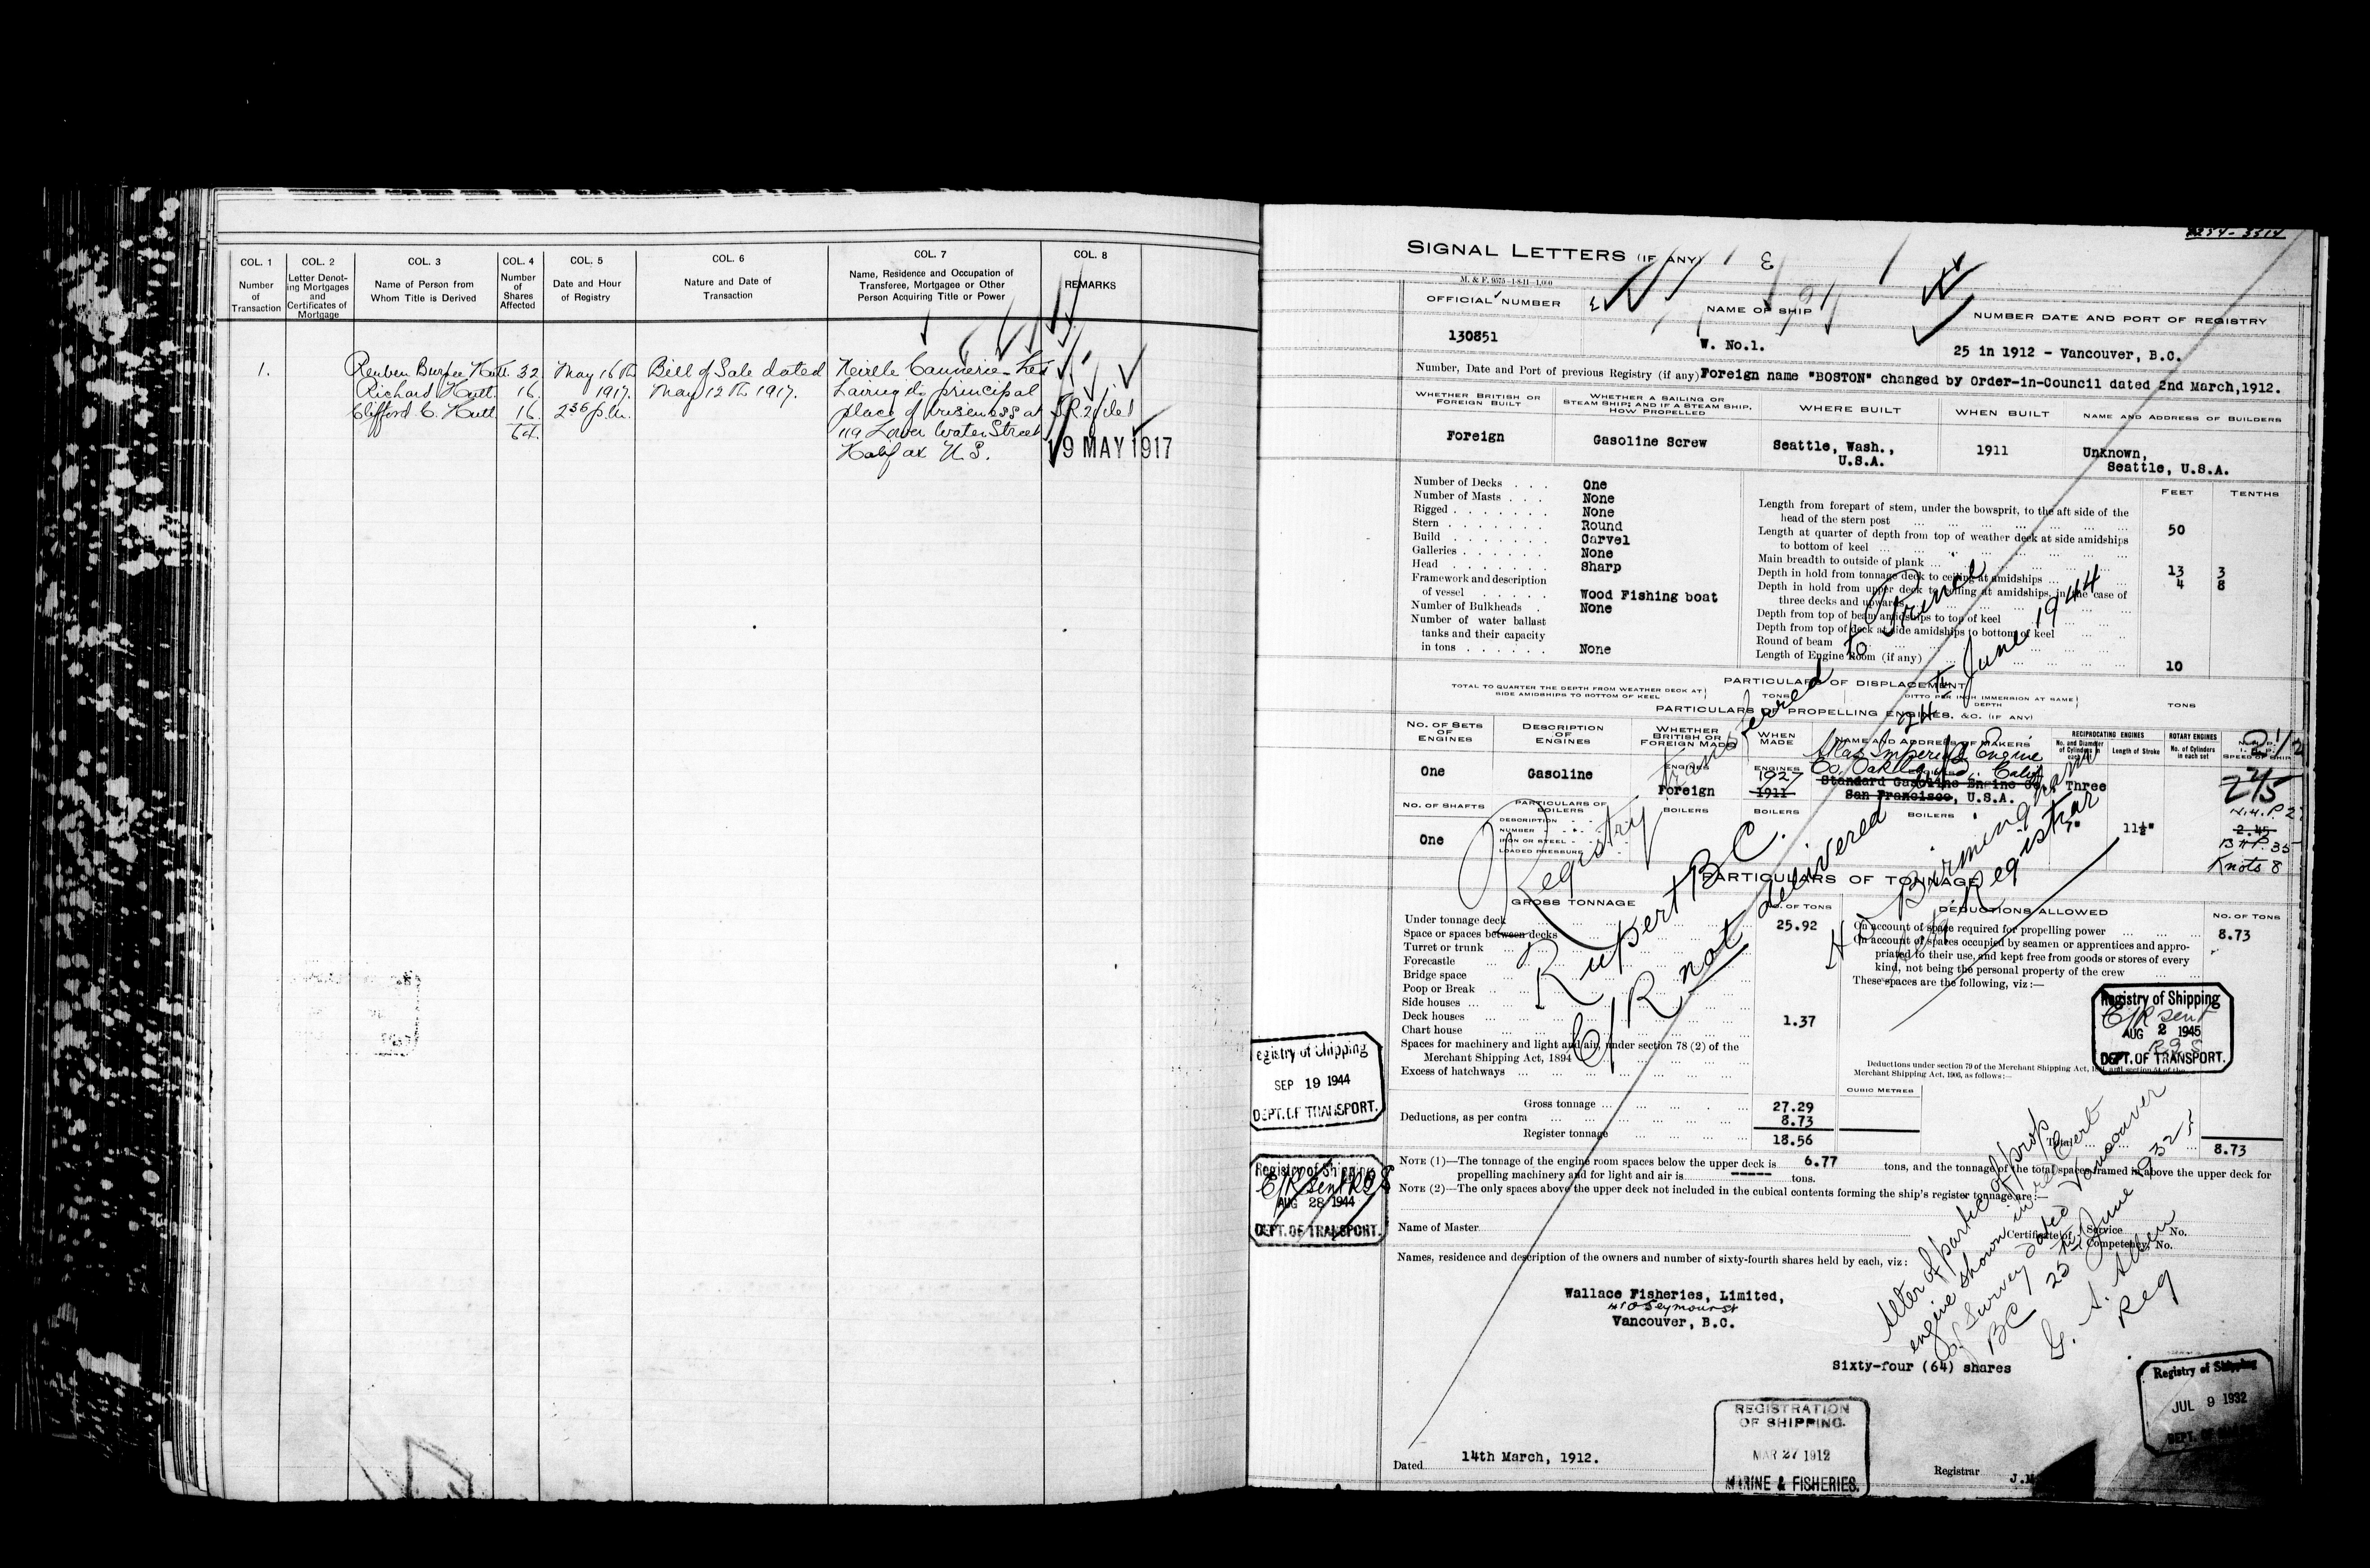 COL. 1
Number
of
Transaction
COL. 2
Letter Denot-
ing Mortgages
and
Certificates of
Mortgage
COL. 3
Name of Person from
Whom Title is Derived
COL. 4
Number
of
Shares
Affected
COL. 5
Date and Hour
of Registry
COL. 6
Nature and Date of
Transaction
COL. 7
Name, Residence and Occupation of
Transferee, Mortgagee or Other
Person Acquiring Title or Power
COL. 8
REMARKS
1. Reuben 32 May 16th Bill of Sale dated
Richard 16 1917. May 12th 1917. principal
Clifford C. 16 2 30 p.m. place of business at
64. 119 Lower Water Street
Halifax N.S.
19 MAY 1917
SIGNAL LETTERS (IF ANY)
M. & F. 9575-1-8-11-1,000
OFFICIAL NUMBER
130851
NAME OF SHIP
W. No.1.
NUMBER DATE AND PORT OF REGISTRY
25 in 1912 - Vancouver, B.C.
Number, Date and Port of previous Registry (if any) Foreign name "BOSTON" changed by Order-in-Council dated 2nd March,1912.
WHETHER BRITISH OR
FOREIGN BUILT
WHETHER A SAILING OR
STEAM SHIP; AND IF A STEAM SHIP,
HOW PROPELLED
WHERE BUILT
WHEN BUILT
NAME AND ADDRESS OF BUILDERS
Foreign
Gasoline Screw
Seattle, Wash.,
U.S.A.
1911
Unknown,
Seattle, U.S.A.
Number of Decks . . . One
Number of Masts . . . None
Rigged . . . . . . . None
Stern . . . . . . . Round
Build . . . . . . . Carvel
Galleries . . . . . . None
Head . . . . . . . Sharp
Framework and description
of vessel . . . . . . Wood Fishing boat
Number of Bulkheads . None
Number of water ballast
tanks and their capacity
in tons . . . . . . None
FEET TENTHS
Length from forepart of stem, under the bowsprit, to the aft side of the
head of the stern post 50
Length at quarter of depth from top of weather deck at side amidships
to bottom of keel
Main breadth to outside of plank 13 3
Depth in hold from tonnage deck to ceiling at amidships 4 8
Depth in hold from upper deck to ceiling at amidships, in the case of
three decks and upwards
Depth from top of beam amidships to top of keel
Depth from top of deck at side amidships to bottom of keel
Round of beam
Length of Engine Room (if any) 10
PARTICULARS OF DISPLACEMENT
TOTAL TO QUARTER THE DEPTH FROM WEATHER DECK AT
SIDE AMIDSHIPS TO BOTTOM OF KEEL
TONS
DITTO PER INCH IMMERSION AT SAME
DEPTH
TONS
PARTICULARS OF PROPELLING ENGINES, &C. (IF ANY)
No. OF SETS
OF
ENGINES
DESCRIPTION
OF
ENGINES
WHETHER
BRITISH OR
FOREIGN MADE
WHEN
MADE
NAME AND ADDRESS OF MAKERS
RECIPROCATING ENGINES
No. and Diameter
of Cylinders in
each set
Length of Stroke
ROTARY ENGINES
No. of Cylinders
in each set
SPEED OF SHIP
2 1/2
One
Gasoline
ENGINES
Foreign
ENGINES
1927
1911
Atlas Imperial Engine
Co, Oakland, Calif
Standard Gasoline Engine Co.
San Francisco, U.S.A.
Three
No. OF SHAFTS
One
PARTICULARS OF
BOILERS
DESCRIPTION
NUMBER
IRON OR STEEL
LOADED PRESSURE
BOILERS
BOILERS
BOILERS
7"
11½"
2.45
B.H.P. 35
Knots 8
PARTICULARS OF TONNAGE
GROSS TONNAGE
NO. OF TONS
Under tonnage deck 25.92
Space or spaces between decks
Turret or trunk
Forecastle
Bridge space
Poop or Break
Side houses
Deck houses 1.37
Chart house
Spaces for machinery and light and air, under section 78 (2) of the
Merchant Shipping Act, 1894
Excess of hatchways
Gross tonnage 27.29
Deductions, as per contra 8.73
Register tonnage 18.56
DEDUCTIONS ALLOWED
NO. OF TONS
On account of space required for propelling power 8.73
On account of spaces occupied by seamen or apprentices and appro-
priated to their use, and kept free from goods or stores of every
kind, not being the personal property of the crew
These spaces are the following, viz:—
Deductions under section 79 of the Merchant Shipping Act, 1894, and section 54 of the
Merchant Shipping Act, 1906, as follows:—
CUBIC METRES
Total 8.73
Registry transferred to Prince
Rupert B C. 24th June 1944
C/R not delivered
H Birmingham
Registrar
Registry of Shipping
C/R sent
AUG 2 1945
DEPT. OF TRANSPORT.
Registry of Shipping
SEP 19 1944
DEPT. OF TRANSPORT.
Registry of Shipping
C/R sent
AUG 28 1944
DEPT. OF TRANSPORT.
NOTE (1)—The tonnage of the engine room spaces below the upper deck is 6.77 tons, and the tonnage of the total spaces framed in above the upper deck for
propelling machinery and for light and air is ----- tons.
NOTE (2)—The only spaces above the upper deck not included in the cubical contents forming the ship's register tonnage are:—
Name of Master
Certificate of Service No.
Competency No.
Names, residence and description of the owners and number of sixty-fourth shares held by each, viz:
Wallace Fisheries, Limited,
Seymour St
Vancouver, B.C.
Sixty-four (64) shares
Alter of partic of prop
engine shown in rest Cert
of Survey dated Vancouver
BC 25th June 1932
G. S. Allen
Reg
Registry of Shipping
JUL 9 1932
Dated 14th March, 1912.
REGISTRATION
OF SHIPPING.
MAR 27 1912
MARINE & FISHERIES.
Registrar